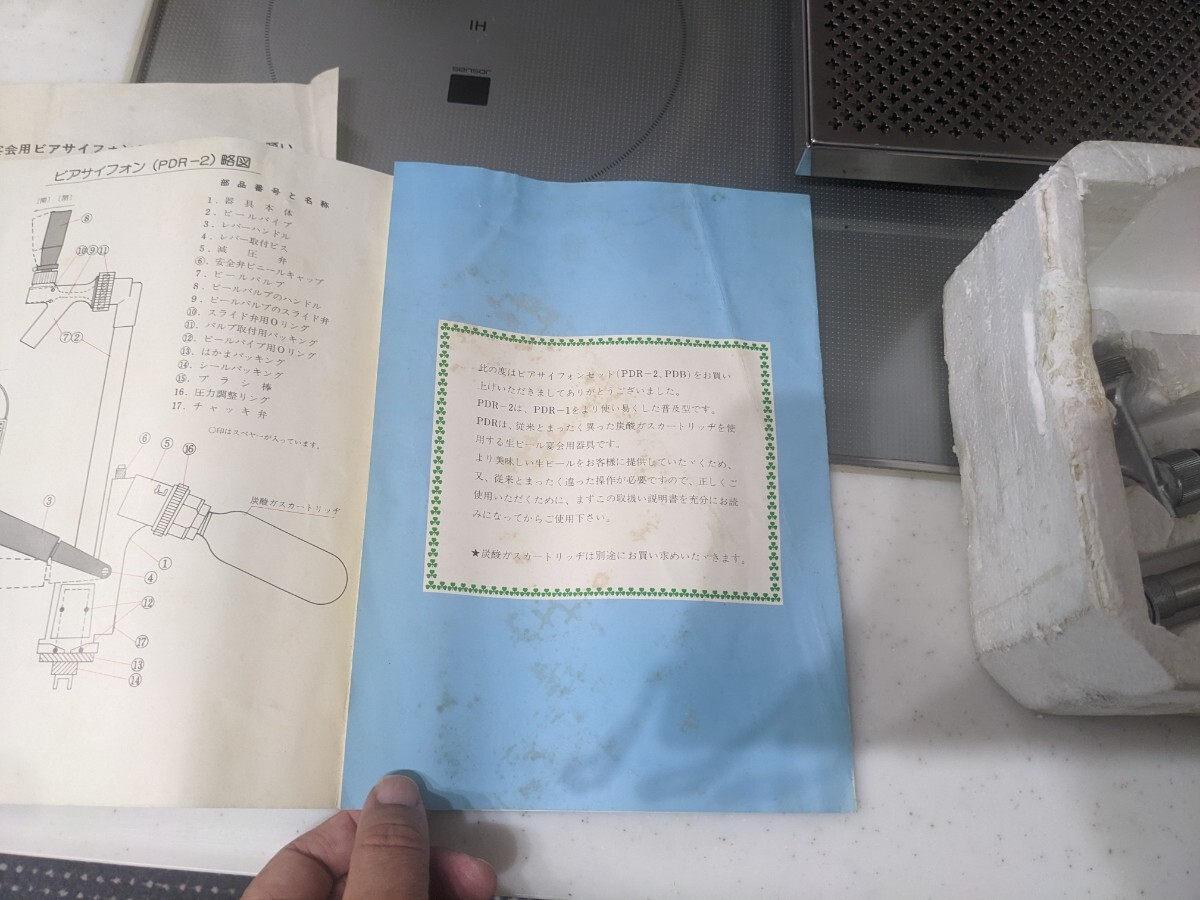 IH
sensor
宴会用ビアサイフォン
ビアサイフォン(PDR-2)略図
部品番号と名称
1. 器具本体
2. ビールパイプ
3. レバーハンドル
4. レバー取付ビス
5. 減圧弁
⑥. 安全弁ビニールキャップ
7. ビールバルブ
8. ビールバルブのハンドル
9. ビールバルブのスライド弁
⑩. スライド弁用Oリング
⑪. バルブ取付用パッキング
⑫. ビールパイプ用Oリング
⑬. はかまパッキング
⑭. シールパッキング
⑮. ブラシ棒
16. 圧力調整リング
17. チャッキ弁
○印はスペヤーが入っています。
(開)(閉)
⑧
⑩⑨⑪
⑦②
⑥ ⑤ ⑯
炭酸ガスカートリッヂ
③
①
④
⑫
⑰
⑬
⑭
此の度はビアサイフォンセット(PDR-2、PDB)をお買い
上げいただきましてありがとうございました。
PDR-2は、PDR-1をより使い易くした普及型です。
PDRは、従来とまったく異った炭酸ガスカートリッヂを使
用する生ビール宴会用器具です。
より美味しい生ビールをお客様に提供していたゞくため、
又、従来とまったく違った操作が必要ですので、正しくご
使用いただくために、まずこの取扱い説明書を充分にお読
みになってからご使用下さい。
★炭酸ガスカートリッヂは別途にお買い求めいたゞきます。